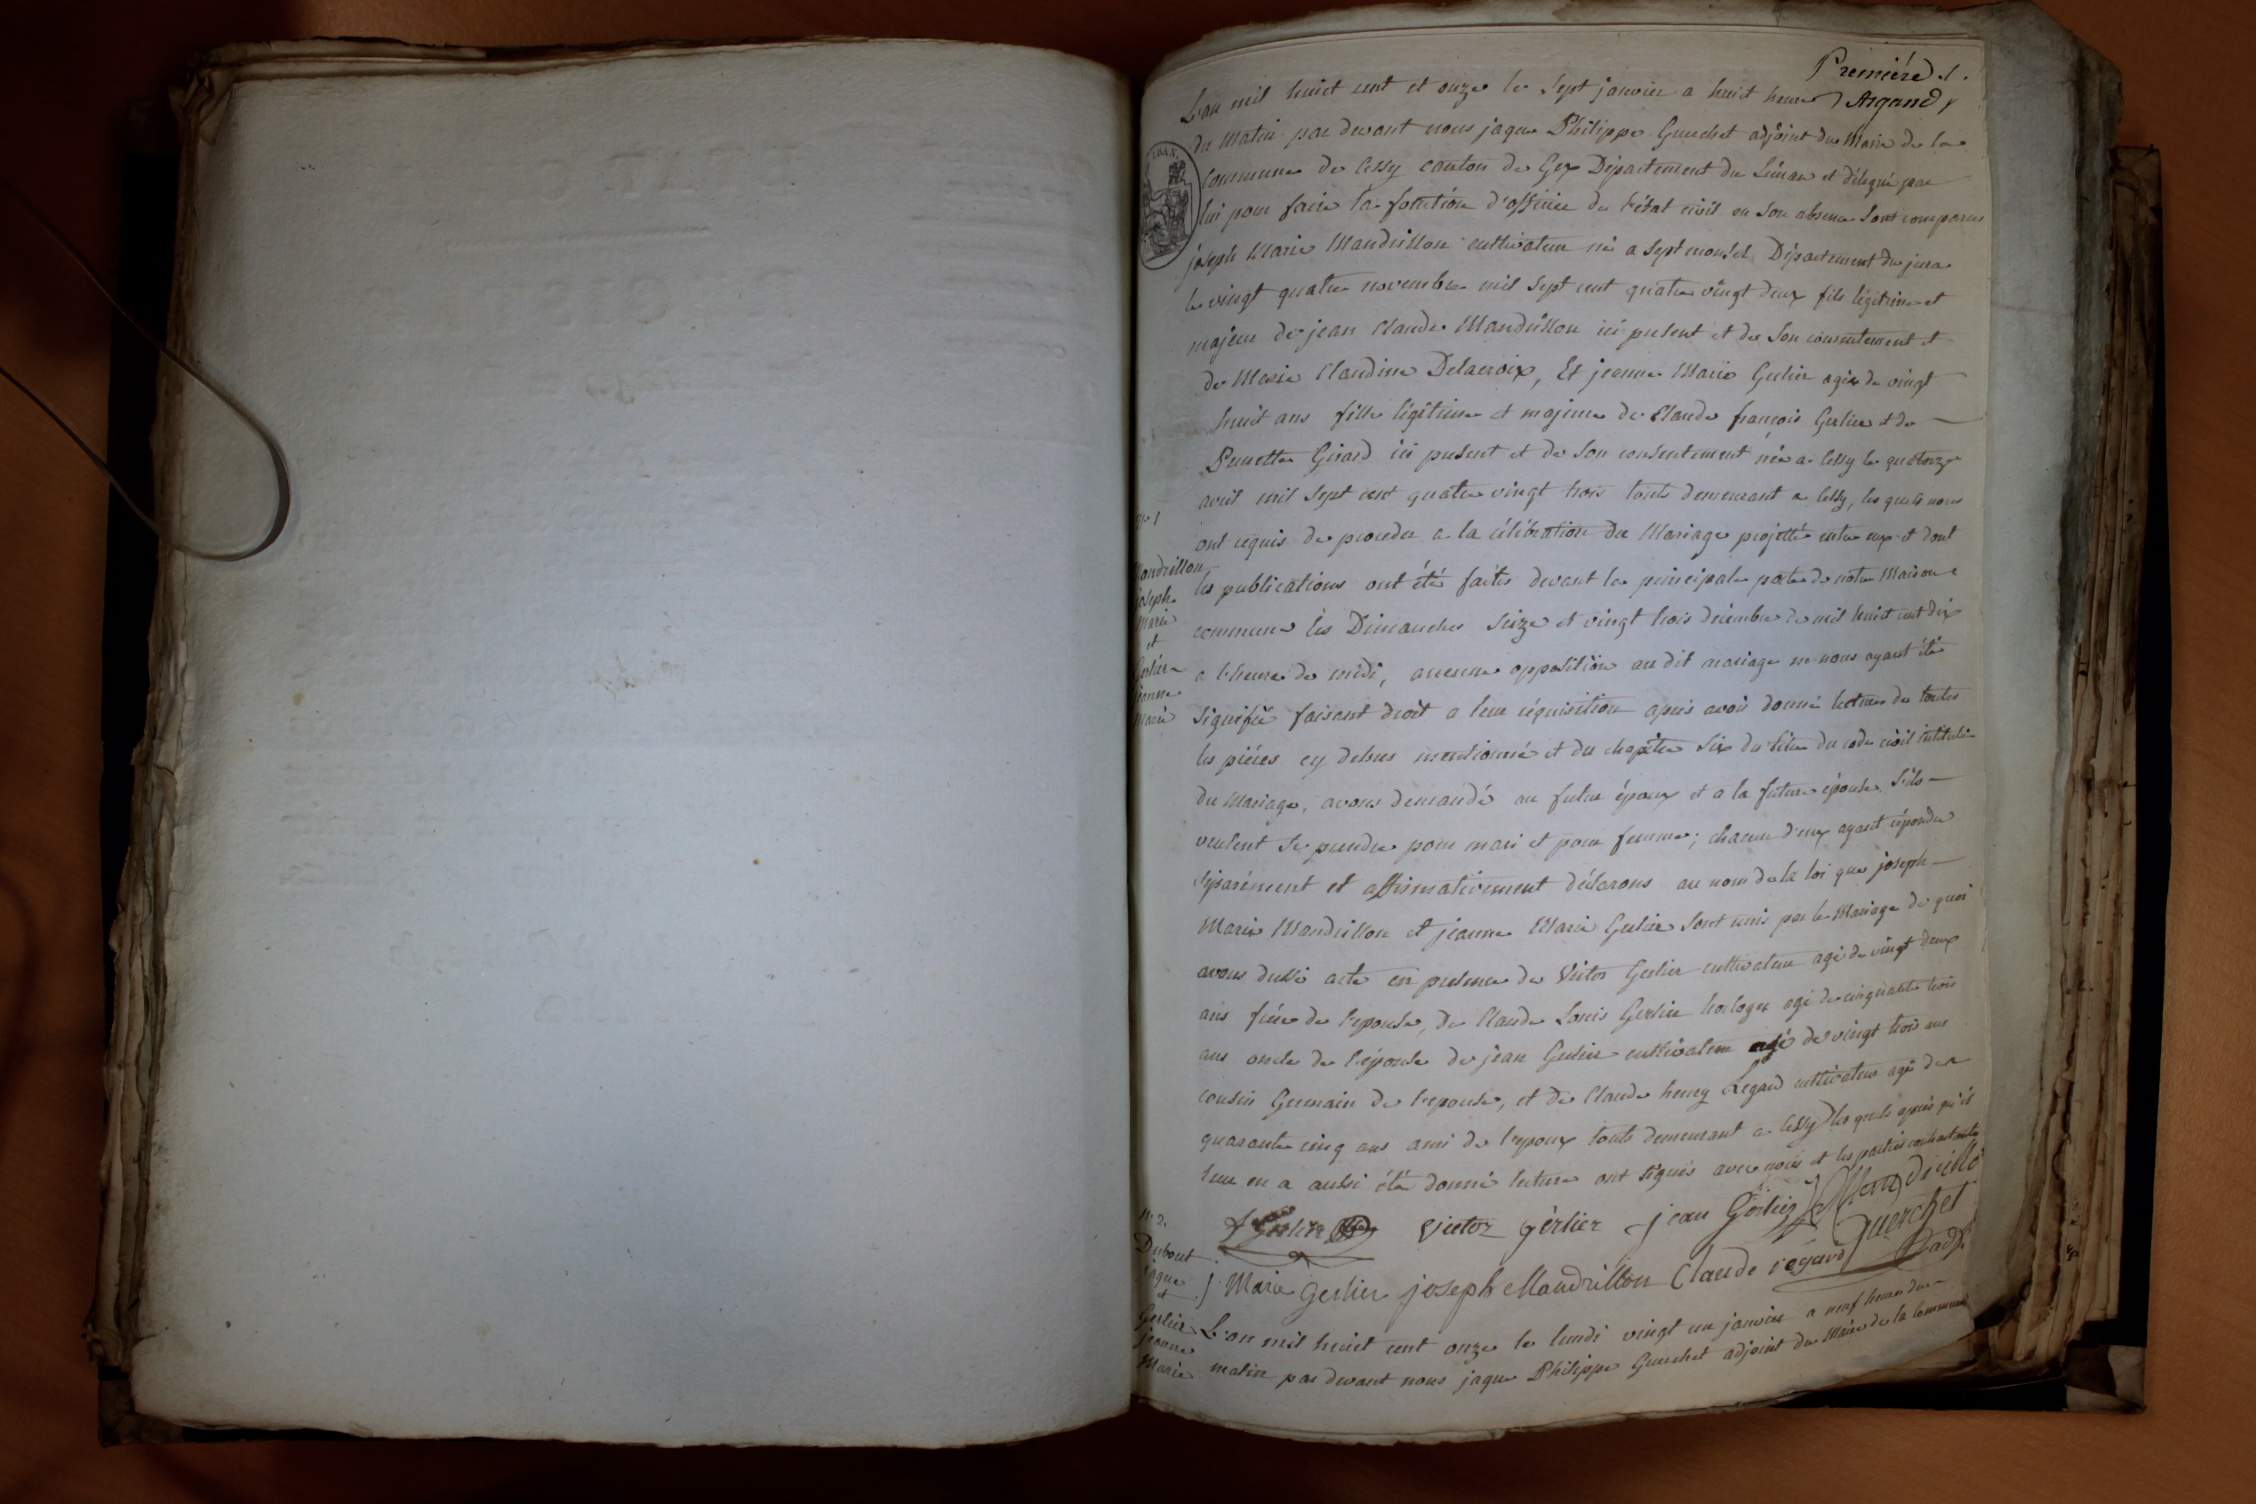 Premiére 1.
Argand
L'an mil huict cent et onze le sept janvier a huict heure
du Matin par devant nous jaque Philippe Guerchet adjoint du Maire de la
commune de Cessy canton de Gex Département du Léman et délégué par
lui pour faire la fonction d'officier de l'état civil en son absence sont comparus
joseph Marie Mandrillon cultivateur né a Septmoncel Département du jura
le vingt quatre novembre mil sept cent quatre vingt deux fils légitime et
majeur de jean Claude Mandrillon ici present et de son consentement et
de Marie Claudine Delacroix, Et jeanne Marie Gerlier agée de vingt
huit ans fille légitime et majeure de Claude françois Gerlier et de
Pernette Girard ici present et de son consentement née a Cessy le quatorze
avril mil sept cent quatre vingt trois touts demeurant a Cessy, les quels nous
ont requis de proceder a la célébration du Mariage projetté entre eux et dont
les publications ont été faites devant la principale porte de notre Maison
commune les Dimanches seize et vingt trois décembre de mil huict cent dix
a l'heure de midi, aucune opposition au dit mariage ne nous ayant été
signifié faisant droit a leur réquisition apres avoir donné lecture de toutes
les piéces cy dessus mentionné et du chapitre six du titre du code civil intitulé
du Mariage, avons demandé au futur époux et a la future épouse s'ils
veulent se prendre pour mari et pour femme; chacun d'eux ayant répondu
séparément et affirmativement déclarons au nom de la loi que joseph
Marie Mandrillon et jeanne Marie Gerlier sont unis par le Mariage de quoi
avons dressé acte en presence de Victor Gerlier cultivateur agé de vingt deux
ans frére de l'epouse, de Claude Louis Gerlier horloger agé de cinquante trois
ans oncle de l'épouse de jean Gerlier cultivateur agé de vingt trois ans
cousin Germain de l'epouse, et de Claude henry Regard cultivateur agé de
quarante cinq ans ami de l'epoux touts demeurant a Cessy les quels apres qu'il
leur en a aussi été donné lecture ont signés avec nous et les parties contractantes
Gerlier victor gerlier jean Gerlier Mandrillon
Guerchet
adj.
J. Marie Gerlier joseph Mandrillon Claude regard
N. 1
Mandrillon
joseph
Marie
et
Gerlier
jeanne
Marie
N. 2.
Dubout
jaque
et
Gerlier
jeanne
Marie
L'an mil huict cent onze le lundi vingt un janvier a neuf heure du
matin par devant nous jaque Philippe Guerchet adjoint du Maire de la commune